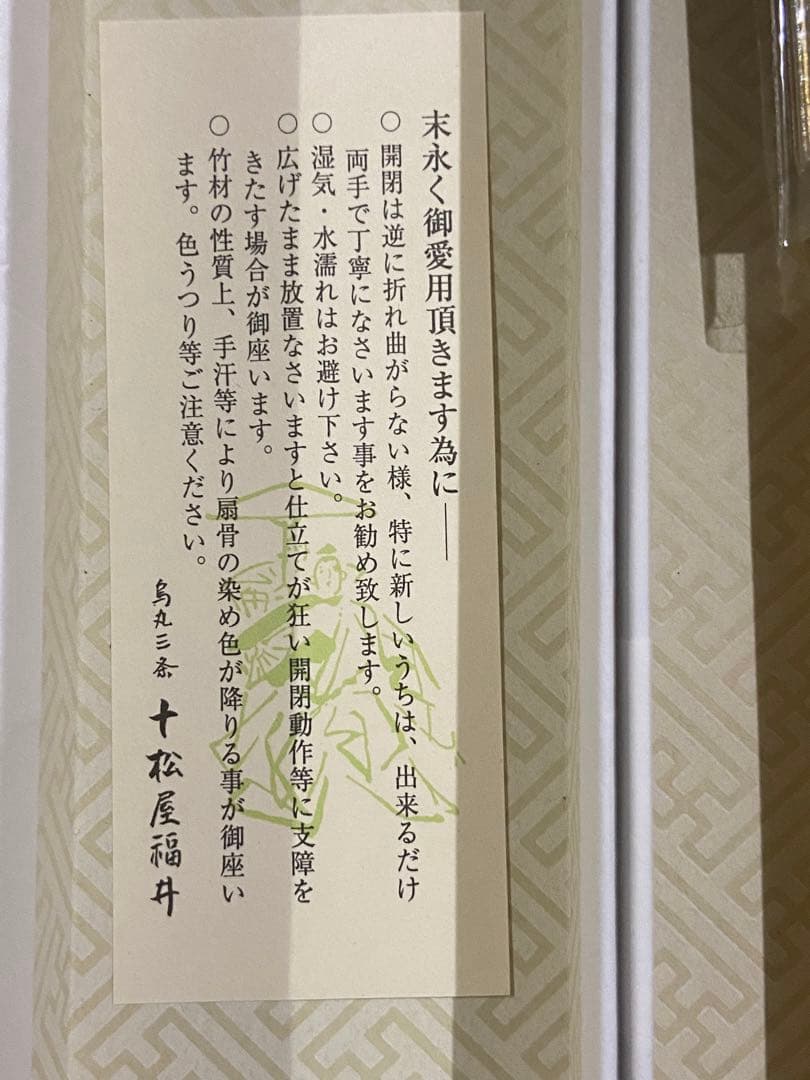 末永く御愛用頂きます為に――
○ 開閉は逆に折れ曲がらない様、特に新しいうちは、出来るだけ
両手で丁寧になさいます事をお勧め致します。
○ 湿気・水濡れはお避け下さい。
○ 広げたまま放置なさいますと仕立てが狂い開閉動作等に支障を
きたす場合が御座います。
○ 竹材の性質上、手汗等により扇骨の染め色が降りる事が御座い
ます。色うつり等ご注意ください。
烏丸三条 十松屋福井